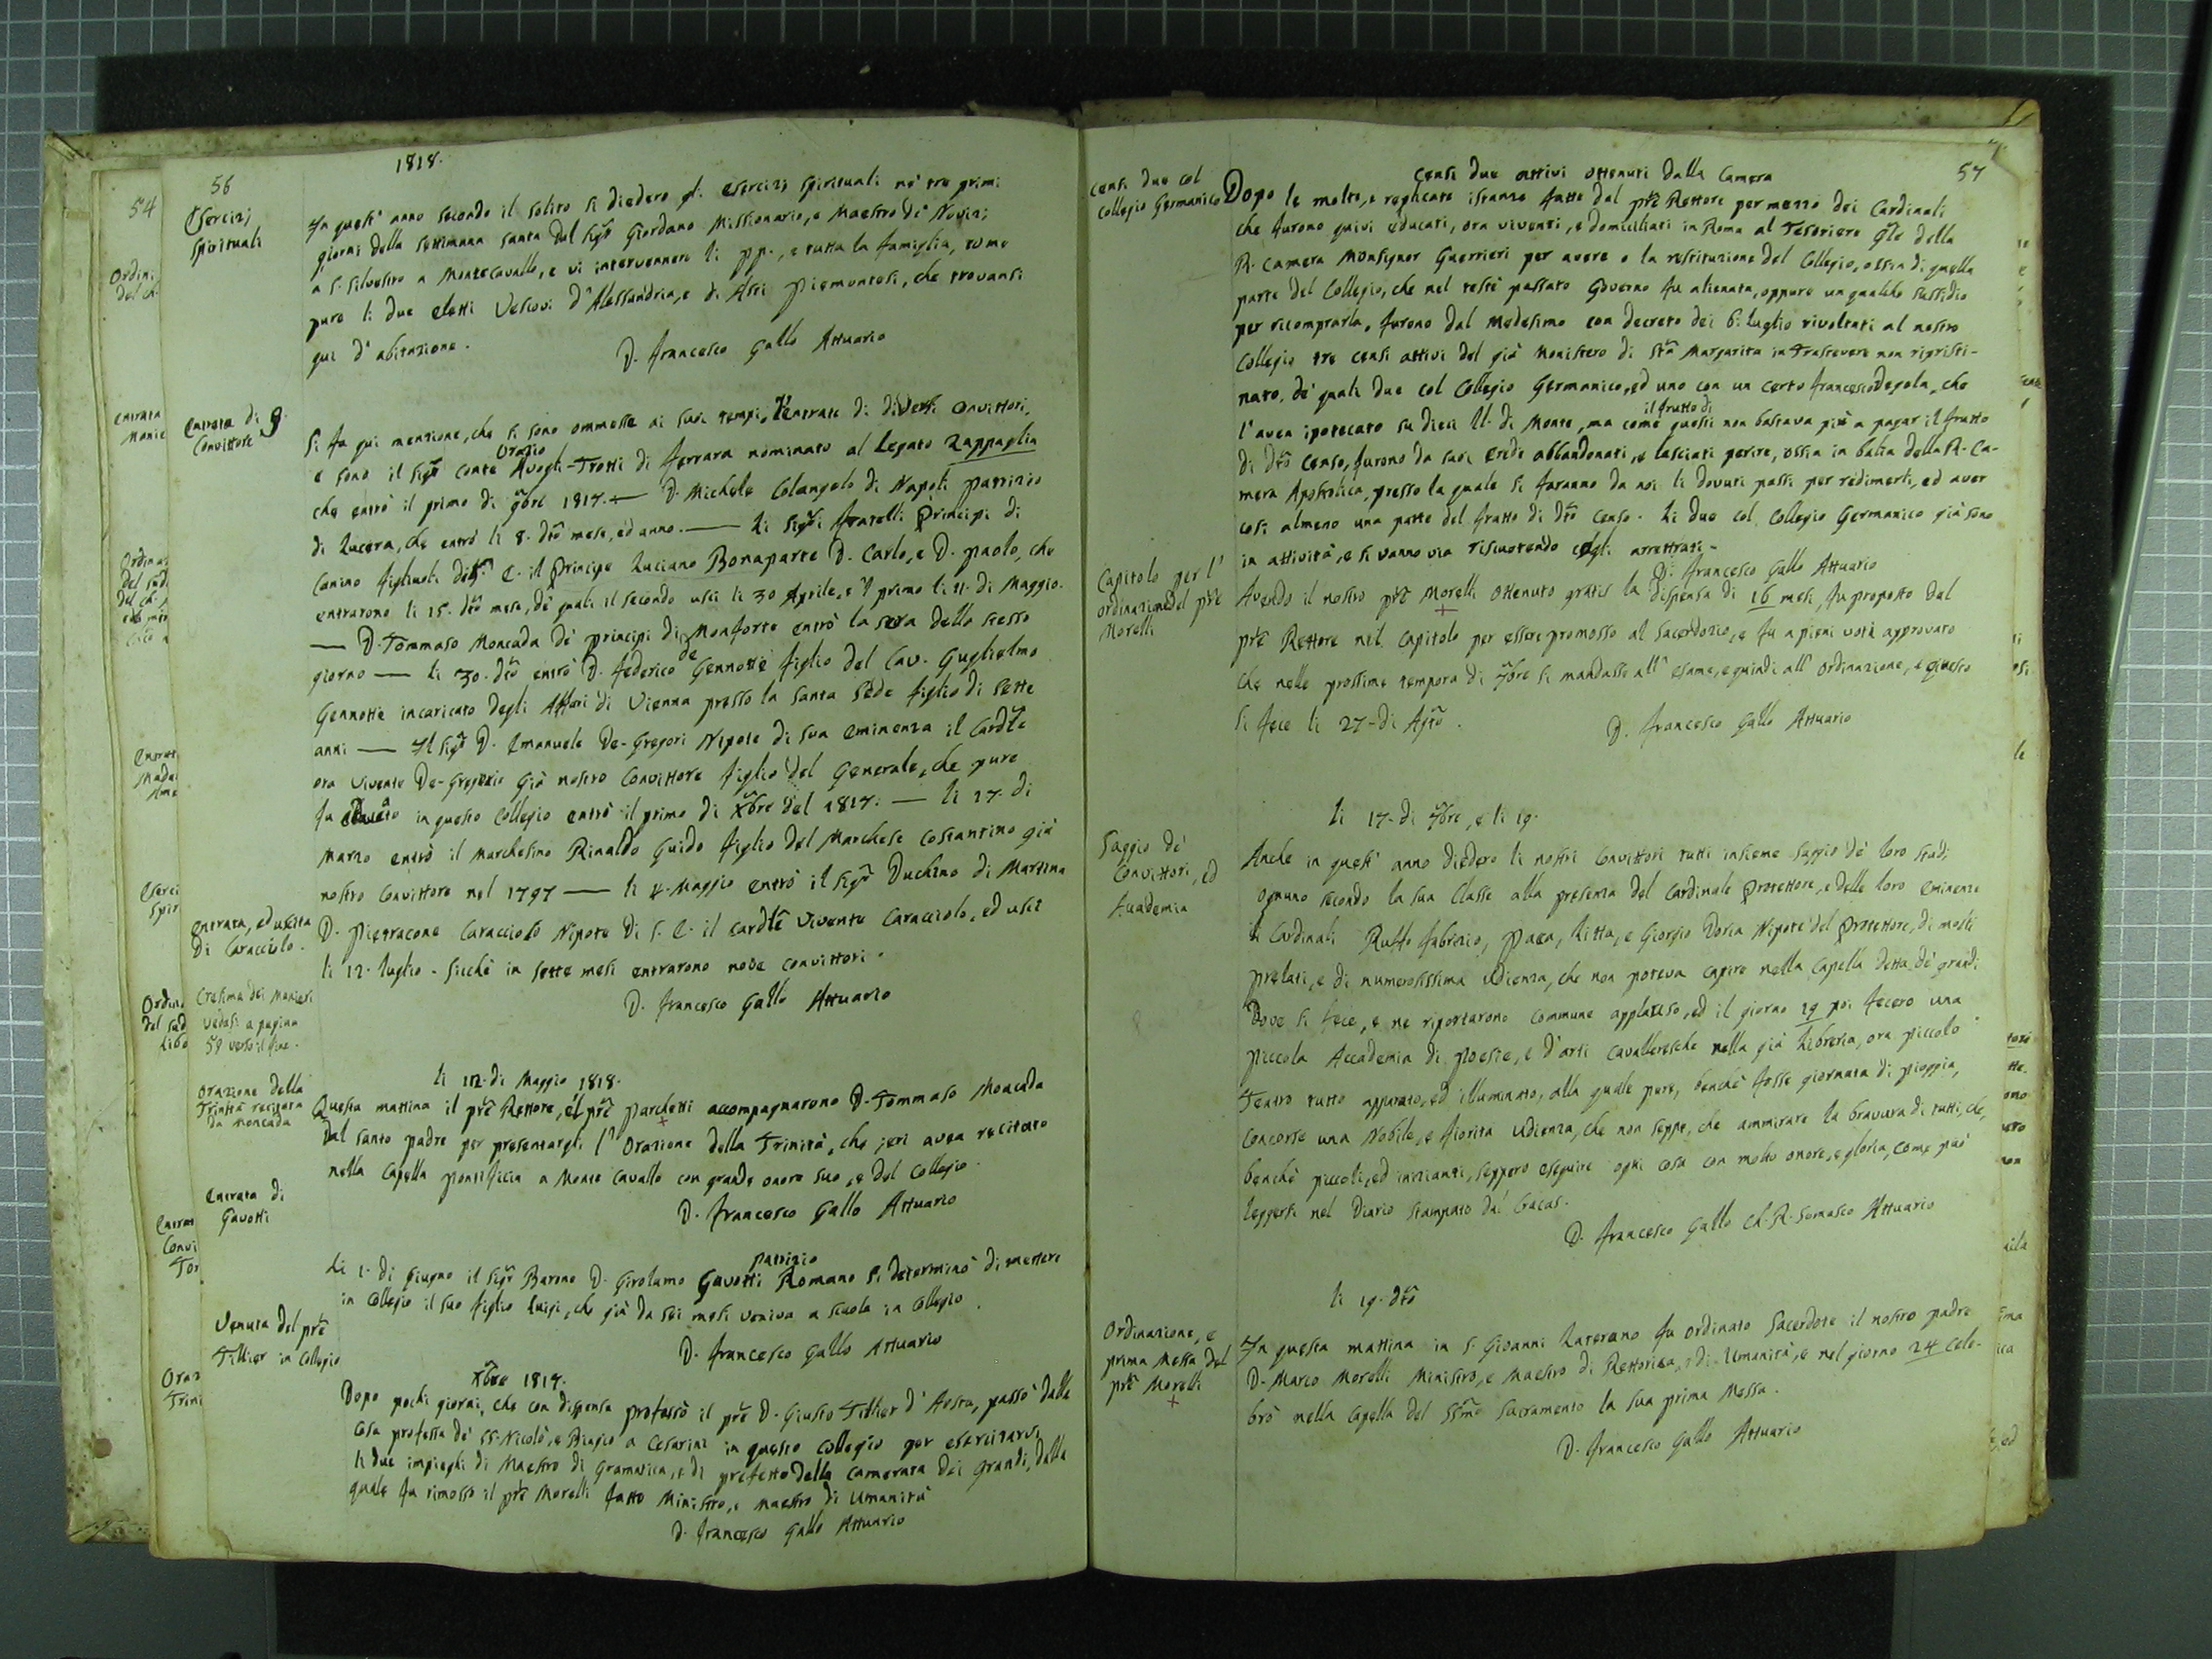 56
1818.
Esercizj
Spirituali
In quest' anno secondo il solito si diedero gl. Esercizi spirituali ne' tre primi
giorni della settimana santa dal Sigr̃ Giordano Missionario, e Maestro di Novizj
a S. Silvestro a Montecavallo, e vi intervennero li PP., e tutta la famiglia, come
pure li due eletti Vescovi d'Alessandria, e di Asti Piemontesi, che trovansi
qui d'abitazione.
D. Francesco Gallo Attuario
Entrata di 9.
Convittore
Si fa qui menzione, che si sono ommesse ai suoi tempi, l'entrate di diversi Convittori,
Orazio
e sono il Sigr̃ Conte Avogli-Trotti di Ferrara nominato al Legato Zappaglia
che entrò il primo di 9bre 1817. — D. Michele Colangelo di Napoli Patrizio
di Lucera, che entrò li 8. dtõ mese, ed anno. — Li Sigri fratelli Principi di
Canino figliuoli di S. E. il Principe Luciano Bonaparte D. Carlo, e D. Paolo, che
entrarono li 15. dtõ mese, de' quali il secondo uscì li 30 Aprile, e 'l primo li 11. di Maggio.
— D. Tommaso Moncada de' Principi di Monforte entrò la sera dello stesso
giorno — li 30. dtõ entrò D. Federico de Gennotte figlio del Cav. Guglielmo
Gennotte incaricato degli Affari di Vienna presso la Santa Sede figlio di sette
anni — Il Sigr̃ D. Emanuele De-Gregori Nipote di sua Eminenza il Cardle
ora vivente De-Gregorio già nostro Convittore figlio del Generale, che pure
fu in questo Collegio entrò il primo di Xbre del 1817. — li 27. di
Marzo entrò il Marchesino Rinaldo Guido figlio del Marchese Costantino già
nostro Convittore nel 1797 — li 4. Maggio entrò il Sigr̃ Duchino di Martina
Entrata, ed uscita
di Caracciolo.
D. Pietracone Caracciolo Nipote di S. E. il Cardlẽ vivente Caracciolo, ed uscì
li 12. Luglio. Sicchè in sette mesi entrarono nove convittori.
D. Francesco Gallo Attuario
Cresima dei
vedasi a pagina
59 verso il fine.
li 17. di Maggio 1818.
Orazione della
Trinità recitata
da Moncada
Questa mattina il pr̃e Rettore, e 'l pr̃e Parchetti accompagnarono D. Tommaso Moncada
dal Santo Padre per presentargli l'Orazione della Trinità, che jeri avea recitato
nella Capella Pontificia a Monte Cavallo con grande onore suo, e del Collegio.
D. Francesco Gallo Attuario
Entrata di
Gavotti
patrizio
Li 1. di Giugno il Sigr̃ Barone D. Girolamo Gavotti Romano si determinò di mettere
in Collegio il suo figlio Luigi, che già da sei mesi veniva a scuola in Collegio.
D. Francesco Gallo Attuario
Venuta del pr̃e
Tillier in Collegio
Xbre 1817.
Dopo pochi giorni, che con dispensa professò il pr̃e D. Giusto Tillier d'Aosta, passò dalla
Casa professa de' SS. Nicolò, e Biagio a Cesarini in questo Collegio per esercitarvi
li due impieghi di Maestro di Gramatica, e di prefetto della Camerata dei grandi, dalla
quale fu rimosso il pr̃e Morelli fatto Ministro, e Maestro di Umanità
D. Francesco Gallo Attuario
57
Censi due attivi ottenuti dalla Camera
Censi due col
Collegio Germanico
Dopo le molte, e replicate istanze fatte dal pr̃e Rettore per mezzo dei Cardinali
che furono quivi educati, ora viventi, e domiciliati in Roma al Tesoriere Glẽ della
R. Camera Monsignor Guerrieri per avere o la restituzione del Collegio, ossia di quella
parte del Collegio, che nel testè passato Governo fu alienata, oppure un qualche sussidio
per ricomprarla, furono dal Medesimo con decreto dei 6. Luglio rivoltati al nostro
Collegio tre censi attivi del già Monistero di Stã Margarita in Trastevere non ripristi-
nato, de' quali due col Collegio Germanico, ed uno con un certo Francesco Degola, che
il frutto di
l'avea ipotecato su dieci ll. di Monte, ma come questi non bastava più a pagar il frutto
di dtõ Censo, furono da suoi eredi abbandonati, e lasciati perire, ossia in balia della R. Ca-
mera Apostolica, presso la quale si faranno da noi li dovuti passi per redimerli, ed aver
così almeno una parte del frutto di dtõ Censo. Li due col Collegio Germanico già sono
in attività, e si vanno via riscuotendo cogli arretrati.
D. Francesco Gallo Attuario
Capitolo per l'
ordinazione del pr̃e
Morelli
Avendo il nostro pr̃e Morelli ottenuto gratis la dispensa di 16 mesi, fu proposto dal
pr̃e Rettore nel Capitolo per essere promosso al Sacerdozio, e fu a pieni voti approvato
che nelle prossime tempora di 7bre si mandasse all' esame, e quindi all' ordinazione, e questo
si fece li 27. di Agtõ.
D. Francesco Gallo Attuario
li 17. di 7bre, e li 19.
Saggio de'
Convittori, ed
Academia
Anche in quest' anno diedero li nostri Convittori tutti insieme saggio de' loro studj
ognuno secondo la sua Classe alla presenza del Cardinale Protettore, e delle loro Eminenze
li Cardinali Ruffo Fabrizio, Pacca, Litta, e Giorgio Doria Nipote del Protettore, di molti
prelati, e di numerosissima udienza, che non poteva capire nella Capella detta de' grandi
dove si fece, e ne riportarono commune applauso, ed il giorno 19 poi fecero una
piccola Accademia di poesie, e d'arti cavalleresche nella già Libreria, ora piccolo
Teatro tutto apparato, ed illuminato, alla quale pure, benchè fosse giornata di pioggia,
concorse una Nobile, e fiorita udienza, che non seppe, che ammirare la bravura di tutti, che,
benchè piccoli, ed inizianti, seppero eseguire ogni cosa con molto onore, e gloria, come può
leggersi nel Diario stampato dal Cracas.
D. Francesco Gallo Ch. R. Somasco Attuario
li 19. dtõ
Ordinazione, e
prima Messa del
pr̃e Morelli
In questa mattina in S. Giovanni Laterano fu ordinato Sacerdote il nostro padre
D. Marco Morelli Ministro, e Maestro di Rettorica, e di Umanità, e nel giorno 24 cele-
brò nella Capella del SSm̃o Sacramento la sua prima Messa.
D. Francesco Gallo Attuario